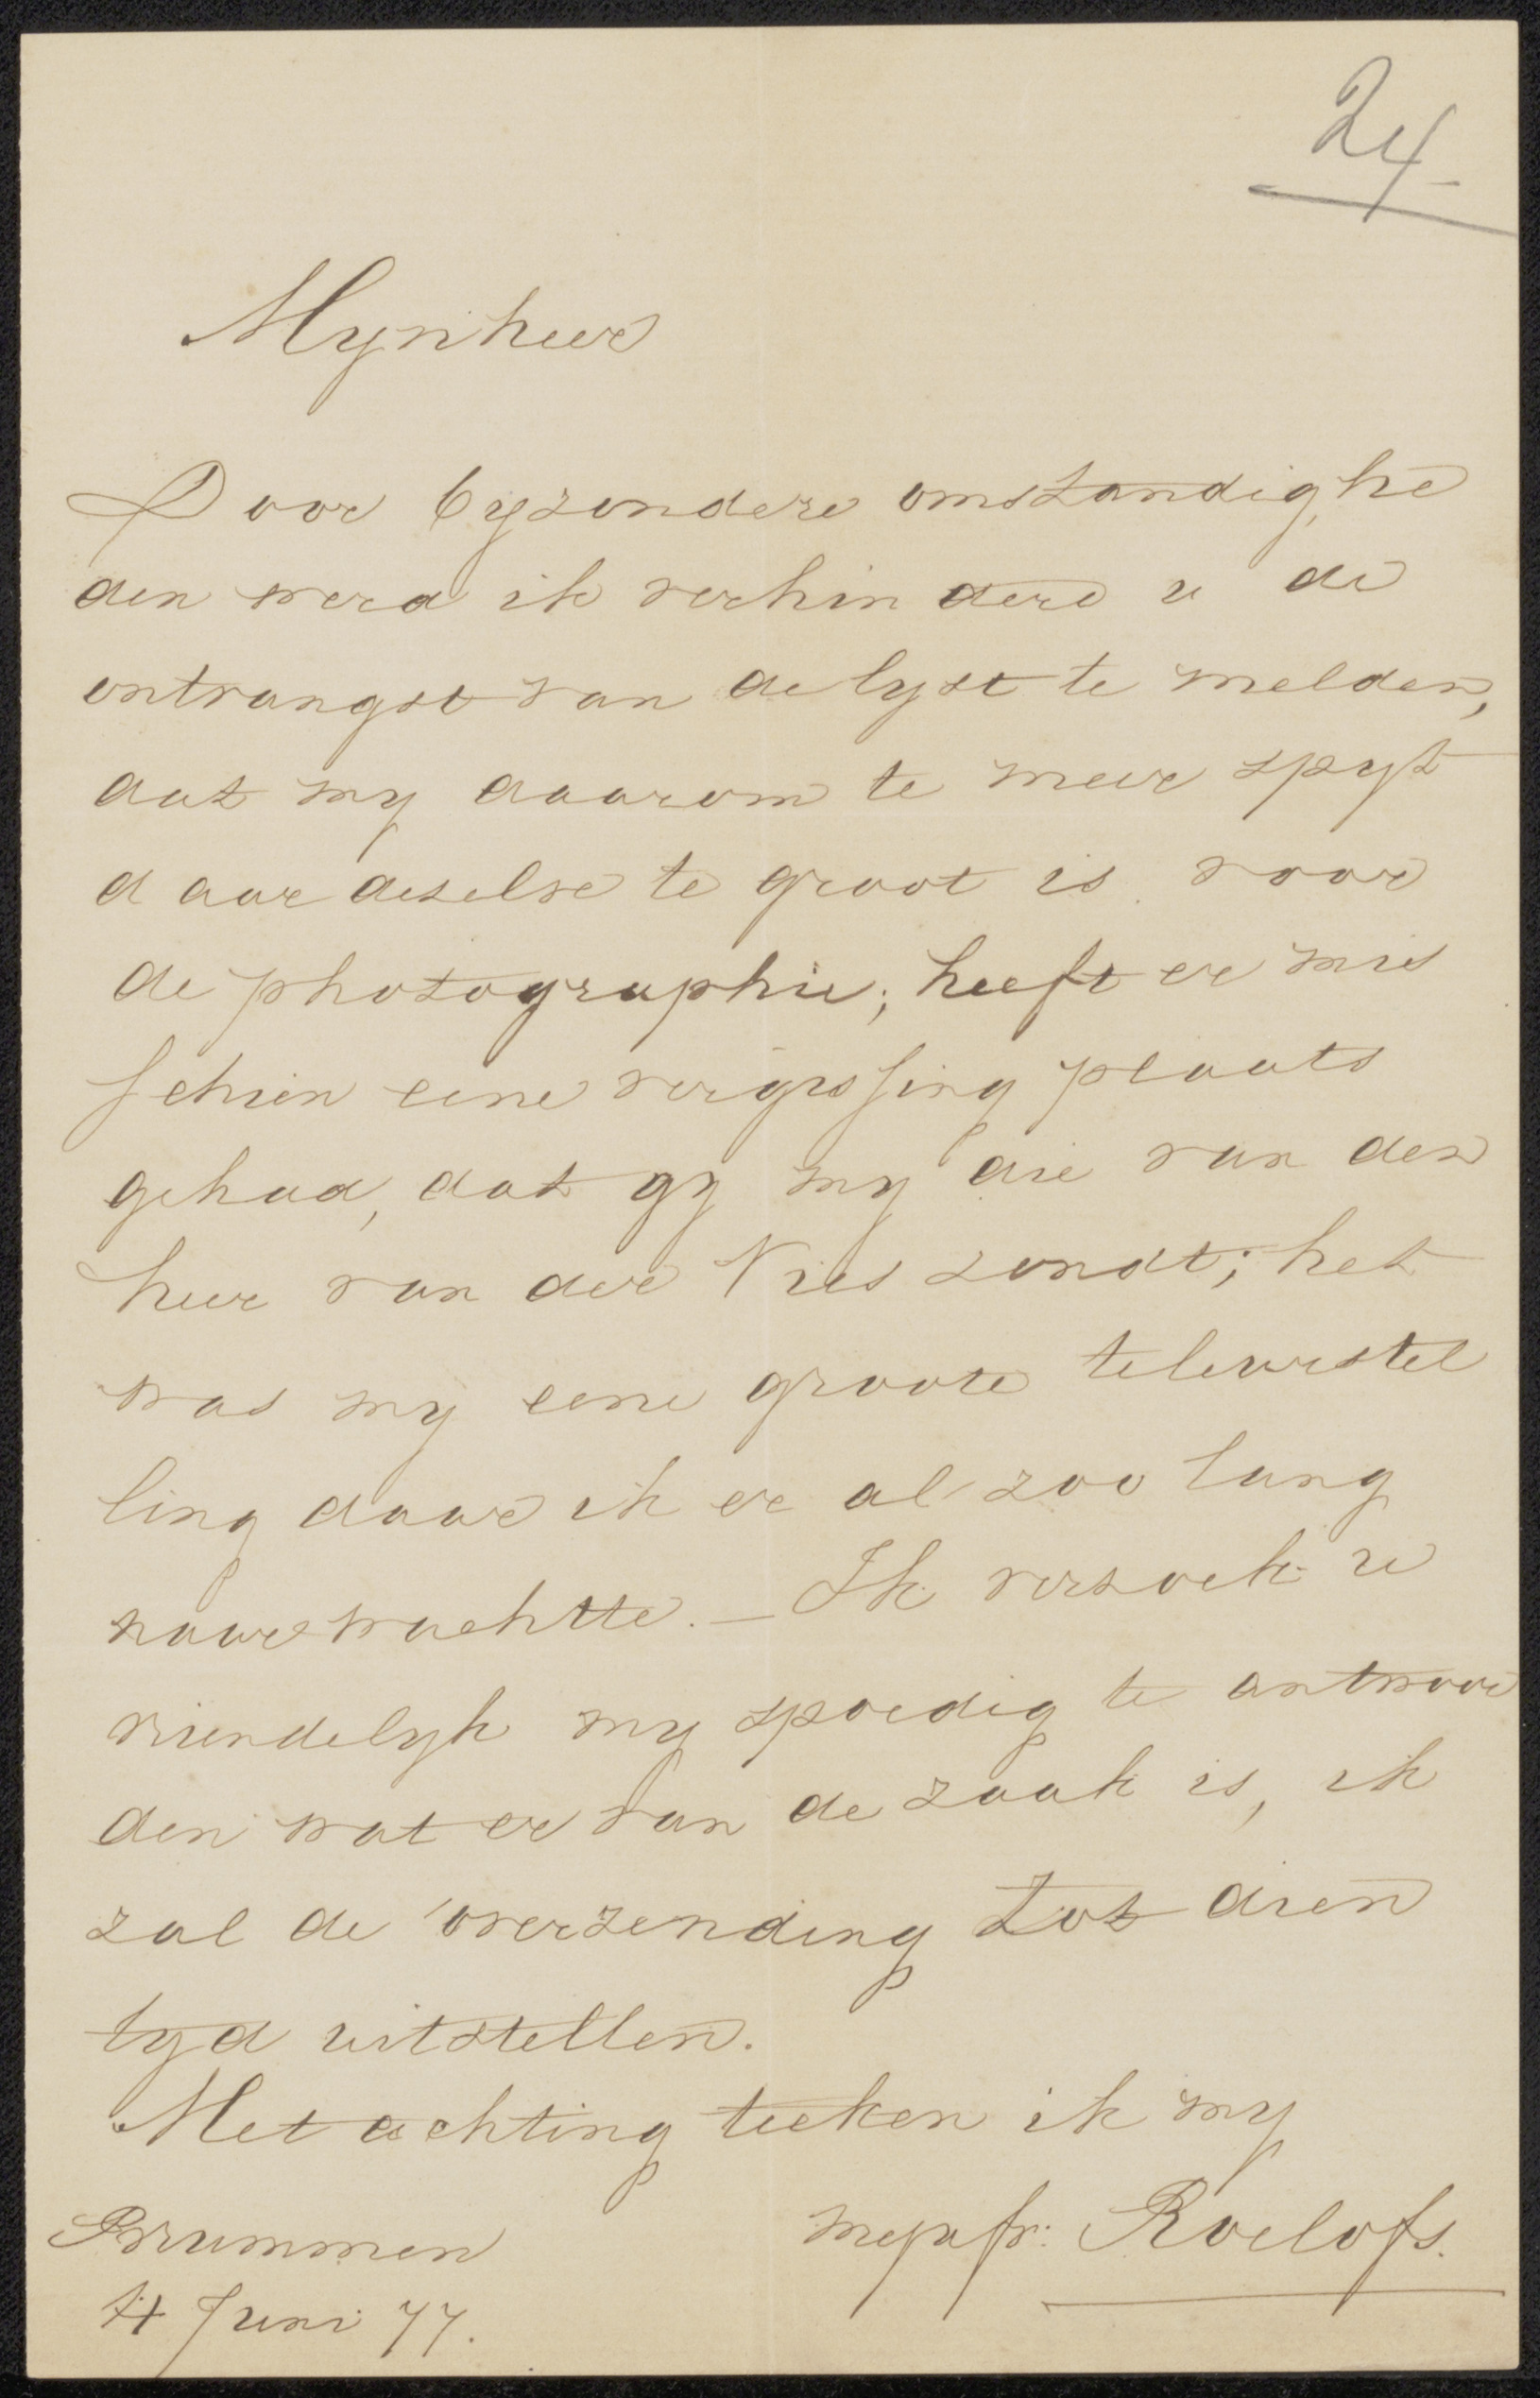 24
Mynheer
Door byzondere omstandighe
den werd ik verhinderd u de
ontvangst van de lyst te melden,
dat my daarom te meer spyt
daar deselve te groot is voor
de photographie; heeft er mis
schien eene vergissing plaats
gehad, dat gy my die van den
heer van der Vies zondt; het
was my eene groote teleurstel
ling daar ik er al zoo lang
naar wachtte. – Ik versoek u
vriendelyk my spoedig te antwoor
den wat er van de zaak is, ik
zal de overzending tot dien
tyd uitstellen.
Met achting teeken ik my
mejufr: Roelofs.
Brummen
4 Juni 77.